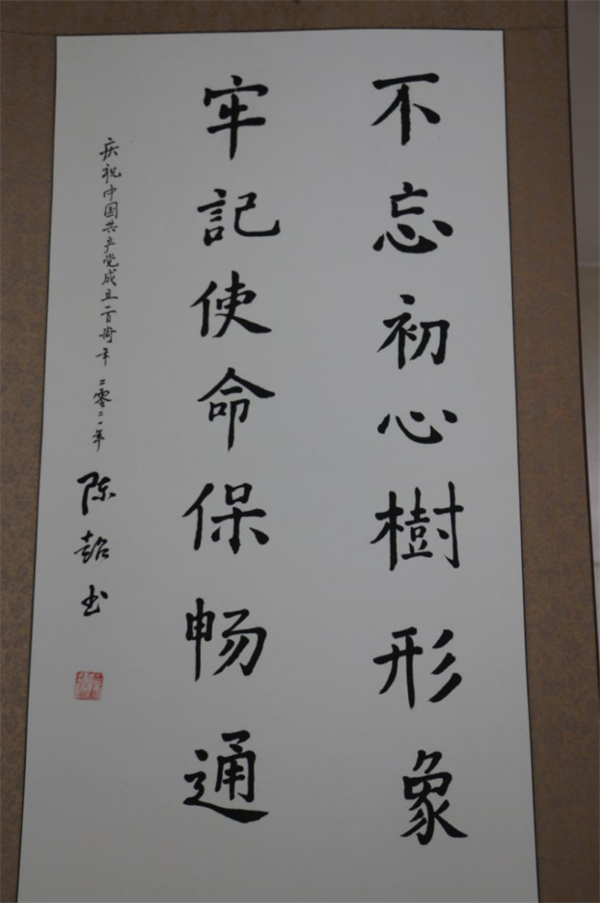 不忘初心樹形象
牢記使命保畅通
庆祝中国共产党成立一百周年 二零二一年
陈 书